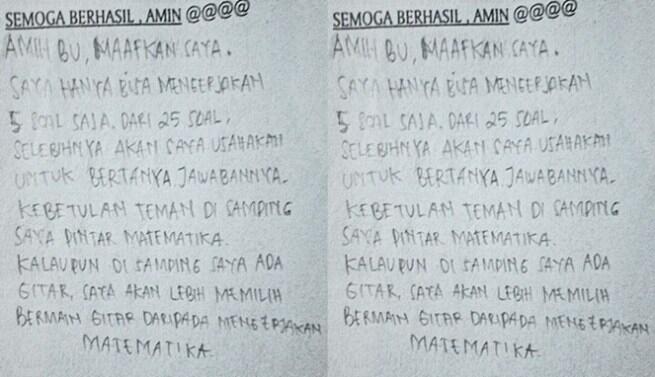 SEMOGA BERHASIL , AMIN @@@@
AMIN BU, MAAFKAN SAYA.
SAYA HANYA BISA MENGERJAKAN
5 SOAL SAJA. DARI 25 SOAL,
SELEBIHNYA AKAN SAYA USAHAKAN
UNTUK BERTANYA JAWABANNYA.
KEBETULAN TEMAN DI SAMPING
SAYA PINTAR MATEMATIKA.
KALAUPUN DI SAMPING SAYA ADA
GITAR, SAYA AKAN LEBIH MEMILIH
BERMAIN GITAR DARIPADA MENGERJAKAN
MATEMATIKA.
SEMOGA BERHASIL , AMIN @@@@
AMIN BU, MAAFKAN SAYA.
SAYA HANYA BISA MENGERJAKAN
5 SOAL SAJA. DARI 25 SOAL,
SELEBIHNYA AKAN SAYA USAHAKAN
UNTUK BERTANYA JAWABANNYA.
KEBETULAN TEMAN DI SAMPING
SAYA PINTAR MATEMATIKA.
KALAUPUN DI SAMPING SAYA ADA
GITAR, SAYA AKAN LEBIH MEMILIH
BERMAIN GITAR DARIPADA MENGERJAKAN
MATEMATIKA.